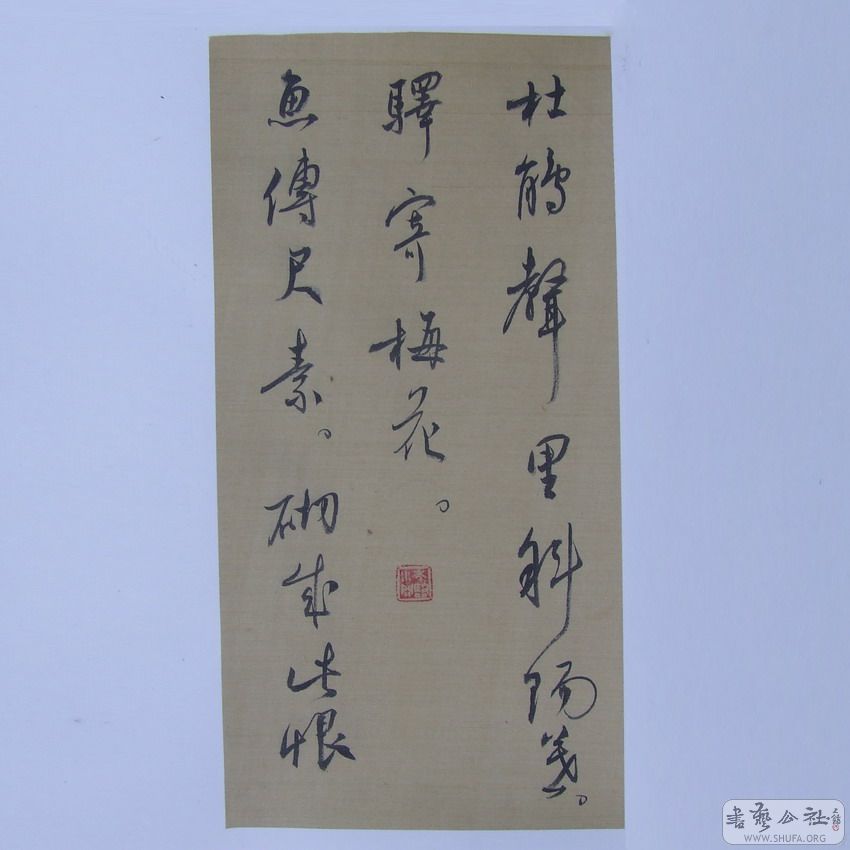 杜鵑聲里斜陽暮。
驛寄梅花。
魚傳尺素。砌成此恨
書藝公社
WWW.SHUFA.ORG